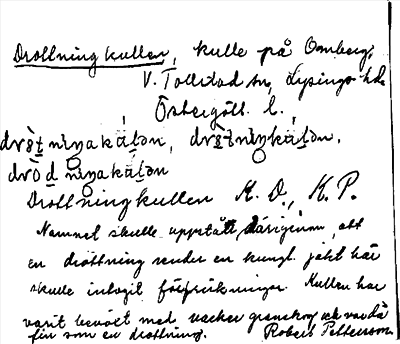 Drottningkullen, kulle på Omberg,
V. Tollstad sn, Lysings hd.
Östergötl. l.
Drottningkullen K. D., K. P.
Namnet skulle uppstått därigenom, att
en drottning under en kungl. jakt här
skulle intagit förfriskningar. Kullen har
varit beväxt med vacker granskog och varit
fin som en drottning. Robert Pettersson